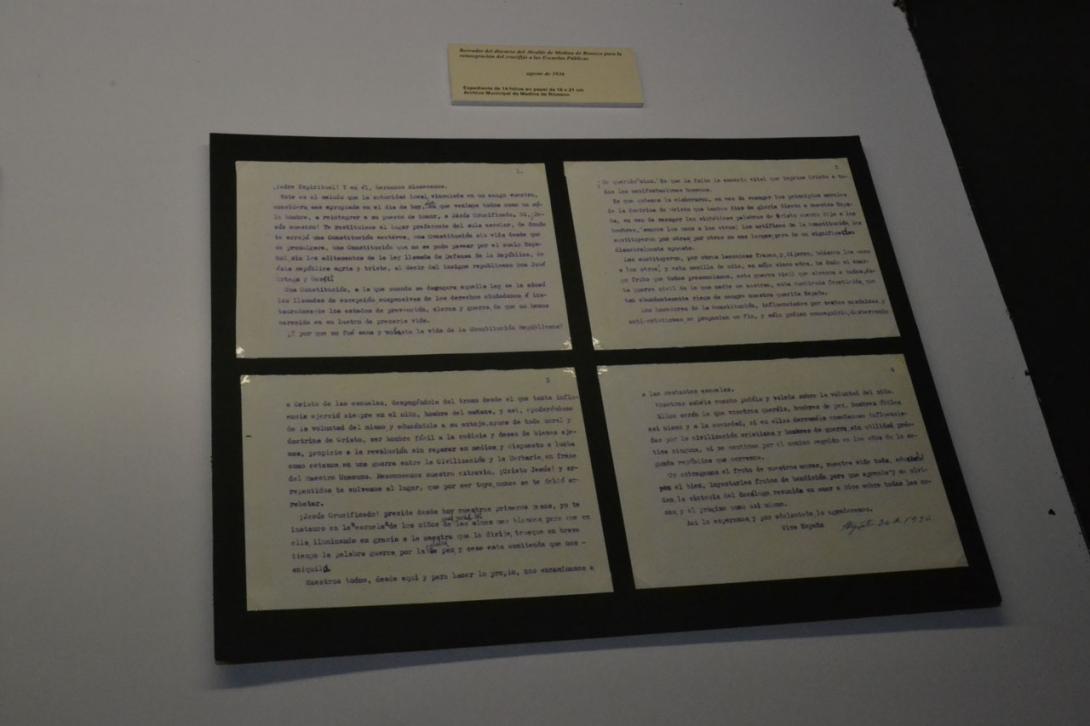 Borrador del discurso del Alcalde de Medina de Rioseco para la
reintegración del crucifijo a las Escuelas Públicas
agosto de 1936
Expediente de 14 folios en papel de 16 x 21 cm
Archivo Municipal de Medina de Rioseco
1.
¡Padre Espiritual! Y en él, hermanos riosecanos.
Este es el saludo que la autoridad local, vinculada en un amigo vuestro,
considera mas apropiado en el día de hoy, en que venimos todos como un só-
lo hombre, a reintegrar a su puesto de honor, a Jesús Crucificado. Sí, ¡Je-
sús nuestro! Te restituimos al lugar preferente del aula escolar, de donde
te arrojó una Constitución sectárea, una Constitución sin vida desde que
se promulgara, una Constitución que no se pudo pasear por el suelo Espa-
ñol, sin los aditamentos de la ley llamada de Defensa de la República, de
ésta República agria y triste, al decir del insigne republicano Don José
Ortega y Gasét.
Una Constitución, a la que cuando se desgajara aquella ley se la
las llamadas de excepción suspensivas de los derechos ciudadanos é ins-
tauradoras de los estados de prevención, alarma y guerra, de que no hemos
carecido en un lustro de precaria vida.
¿Y por qué no fué sana y robusta la vida de la Constitución Republicana?
2
¡Ah querido niños. Es que la falta la esencia vital que imprime Cristo a to-
das las manifestaciones humanas.
Es que quienes la elaboraron, en vez de recoger los principios morales
de la doctrina de Cristo que tantos días de gloria dieron a nuestra Espa-
ña, en vez de recoger las sintéticas palabras de Cristo cuando dijo a los
hombres, "amaos los unos a los otros; los artífices de la Constitución, las
sustituyeron por otras, por otras de esa lengua, pero de un signification
diametralmente opuesto.
Las sustituyeron, por otra lacónica frase, y dijeron, odiaros los unos
a los otros; y esta semilla de odio, en sólo cinco años, ha dado el amar-
go fruto que todos presenciamos, esta guerra civil que alcanza a todos, és-
ta guerra civil de la que nadie se sustrae, esta contienda fratricida, que
tan abundantemente riega de sangre nuestra querida España.
Los hacedores de la Constitución, influenciados por textos marxistas, y
anti-cristianos, se proponían un fin, y sólo podían conseguirlo, desterrando
3
a Cristo de las escuelas, despegándolo del trono desde el que tanta influ-
encia ejerció siempre en el niño, hombre del mañana, y así, apoderándose
de la voluntad del mismo y educándole a su antojo, ayuno de toda moral y
doctrina de Cristo, ser hombre fácil a la codicia y deseo de bienes aje-
nos, propicio a la revolución sin reparar en medios, y dispuesto a lucha
como estamos, en una guerra entre la Civilización y la Barbarie, en frase
del Maestro Unamuno. Reconocemos nuestro extravío, ¡Cristo Jesús! y ar-
repentidos te volvemos al lugar, que por ser tuyo, nunca se te debió ar-
rebatar.
¡Jesús Crucificado! preside desde hoy nuestras primeras aulas, yo te
instauro en la escuela de los niños de las almas mas blancas, para que en
ella, iluminando en gracia a la maestra que la dirije, trueque en breve
tiempo la palabra guerra, por la de paz, y cese esta contienda que nos
aniquila.
Maestros todos, desde aquí y para hacer lo propio, nos encaminamos a
4
a las restantes escuelas.
Vosotros sabéis cuanto podéis y valéis sobre la voluntad del niño.
Ellos serán lo que vosotros queráis, hombres de paz, hombres útiles
así mismo y a la sociedad, si en ellos derramáis enseñanzas influencia-
das por la civilización cristiana, y hombres de guerra, sin utilidad prác-
tica ninguna, si se continúa por el camino seguido en los años de la se-
gunda república que corremos.
Os entregamos el fruto de nuestros amores, nuestra vida toda,
para el bien, inyectarles frutos de bendición para que aprendan y no olvi-
den, la victoria del decálogo, resumida en amar a Dios sobre todas las co-
sas, y al prójimo como así mismo.
Así lo esperamos, y por adelantado, lo agradecemos.
Viva España
Agosto 26 de 1936